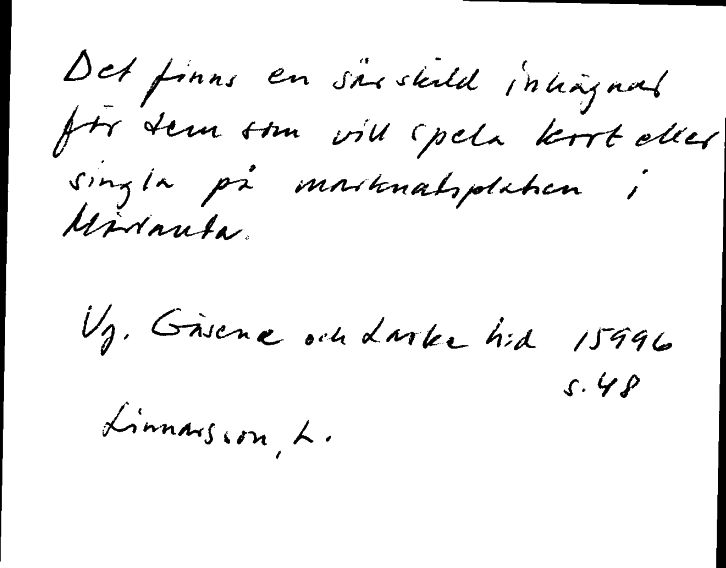 Det finns en särskild inhägnad
för dem som vill spela kort eller
singla på marknatsplatsen i
Mårlanda.
Vg. Gäsene och Laske hd 15996
s. 48
Linnarsson, L.